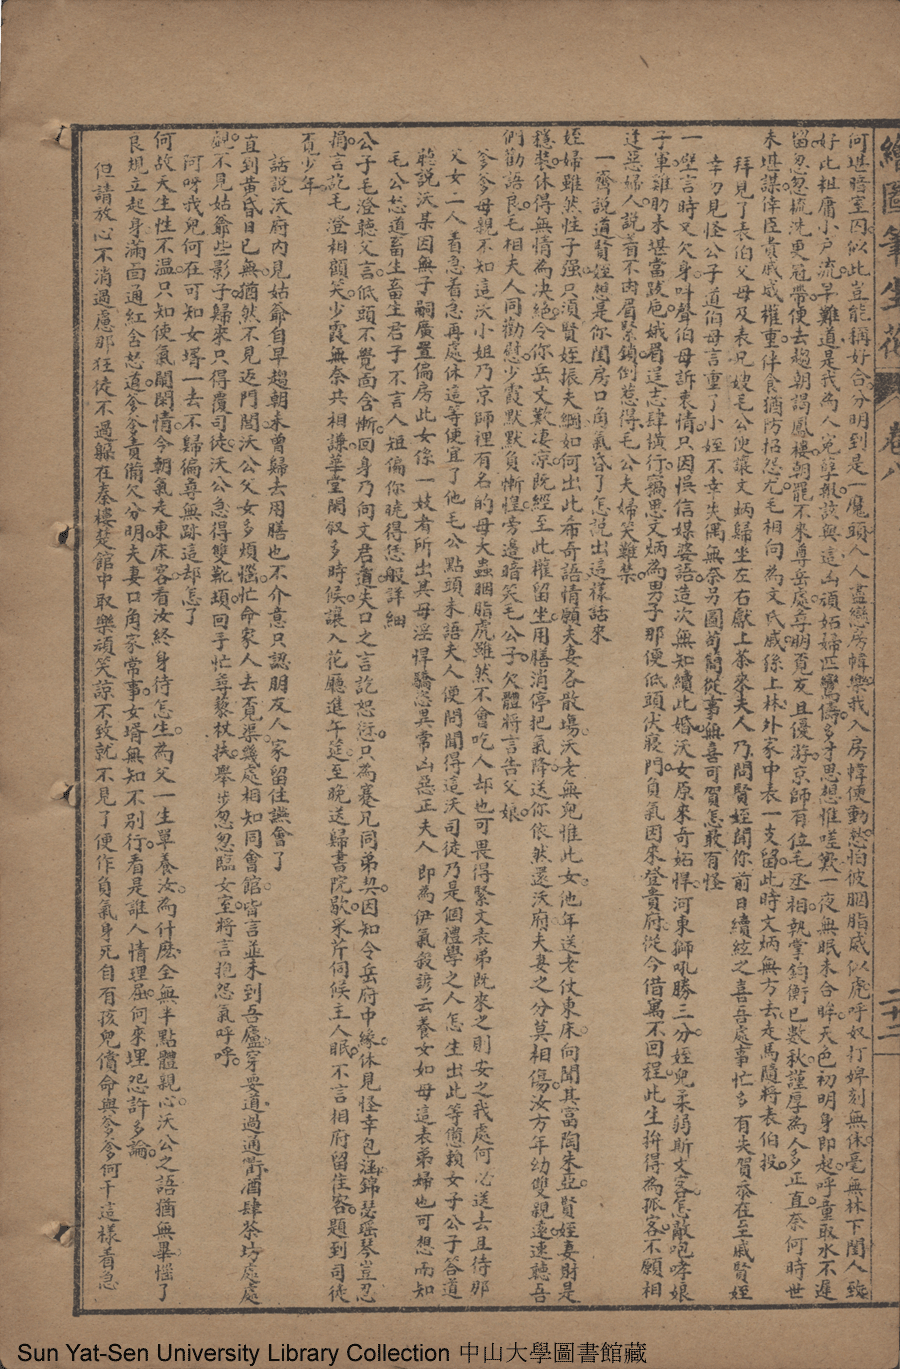 繪圖筆生花 卷八 二十二
何堪暗室因似此豈能稱好合分明到是一魔頭人人盡戀房幃樂我入房幃便動愁怕彼胭脂威似虎呼奴打婢刻無休毫無林下閨人致
好此粗庸小戶流早難道是我為人冤孽報該與這凶頑妬婦匹鸞儔多才思想惟嗟歎一夜無眠未合眸天色初明身即起呼童取水不遲
留忽忽梳洗更冠帶便去趨朝謁鳳樓朝罷不來尊岳處尋朋覓友且優游京師有位毛丞相執掌鈞衡已數秋謹厚為人多正直奈何時世
未堪謀倖臣貴戚威權重伴食猶防招怨尤毛相向為文氏戚係上林外家中表一支留此時文炳無方去走馬隨將表伯投
拜見了表伯父母及表兄嫂毛公便讓文炳歸坐左右獻上茶來夫人乃問賢姪聞你前日續絃之喜吾處事忙多有失賀忝在至戚賢姪
幸勿見怪公子道伯母言重了小姪不幸失偶無奈另圖苟簡從事無喜可賀怎敢有怪
一壁言時又欠身叫聲伯母訴衷情只因悞信媒婆語造次無知續此婚沃女原來奇妬悍河東獅吼勝三分姪兒柔弱斯文客怎敵咆哮娘
子軍雞肋未堪當跋扈娥眉逞志肆橫行竊思文炳為男子那便低頭伏寢門負氣因來登貴府從今借寓不回程此生拚得為孤客不願相
逢惡婦人說着不由眉緊鎖倒惹得毛公夫婦笑難禁
一齊說道賢姪想是你閨房口角氣昏了怎說出這樣話來
姪婦雖然性子强只須賢姪振夫綱如何出此希奇語情願夫妻各散塲沃老無兒惟此女他年送老仗東床向聞其富陶朱亞賢姪妻財是
穩裝休得無情為决絕令你岳丈歎凄凉既經至此權留坐用膳消停把氣降送你依然還沃府夫妻之分莫相傷汝方年幼雙親遠速聽吾
們勸語良毛相夫人同勸慰少霞默默負慚惶旁邊暗笑毛公子欠體將言告父娘
爹爹母親不知這沃小姐乃京師裡有名的母大蟲胭脂虎雖然不會吃人却也可畏得緊文表弟既來之則安之我處何必送去且待那
父女二人着急着急再處休這等便宜了他毛公點頭未語夫人便問聞得這沃司徒乃是個禮學之人怎生出此等憊賴女子公子答道
雖說沃某因無子嗣廣置偏房此女係一妓者所出其母淫悍驕恣異常凶惡正夫人即為伊氣殺諺云養女如母這表弟婦也可想而知
毛公怒道畜生畜生君子不言人短偏你曉得恁般詳細
公子毛澄聽父言低頭不覺面含慚回身乃向文君道失口之言訖恕愆只為蹇兄同弟契因知令岳府中緣休見怪幸包涵錦瑟瑶琴豈忍
捐言訖毛澄相顧笑少霞無奈共相謙華堂閑叙多時候讓入花廳進午筵至晚送歸書院歇采芹伺候主人眠不言相府留住客題到司徒
覓少年
話說沃府內見姑爺自早趨朝未曾歸去用膳也不介意只認朋友人家留住讌會了
直到黄昏日已無猶然不見返門閭沃公父女多煩惱忙命家人去覓渠幾處相知同會館皆言並未到吾廬穿要道過通衢酒肆茶坊處處
覷不見姑爺些影子歸來只得覆司徒沃公急得雙靴頓回手忙尋藜杖扶舉步忽忽臨女室將言抱怨氣呼呼
阿呀我兒何在可知女壻一去不歸徧尋無跡這却怎了
何故天生性不温只知使氣鬧閨情今朝氣走東床客看汝終身待怎生為父一生單養汝為什麽全無半點體親心沃公之語猶無畢惱了
良規立起身滿面通紅含怒道爹爹責備欠分明夫妻口角家常事女壻無知不别行看是誰人情理屈何來埋怨許多論
但請放心不消過慮那狂徒不過躲在秦樓楚館中取樂頑笑諒不致就不見了便作負氣身死自有孩兒償命與爹爹何干這樣着急
Sun Yat-Sen University Library Collection 中山大學圖書館藏